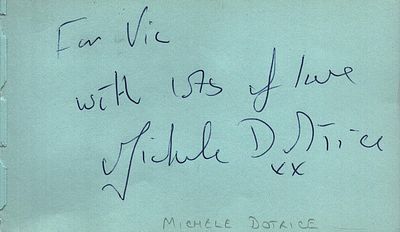 For Vic
with lots of love
Michele Dotrice
xx
MICHELE DOTRICE